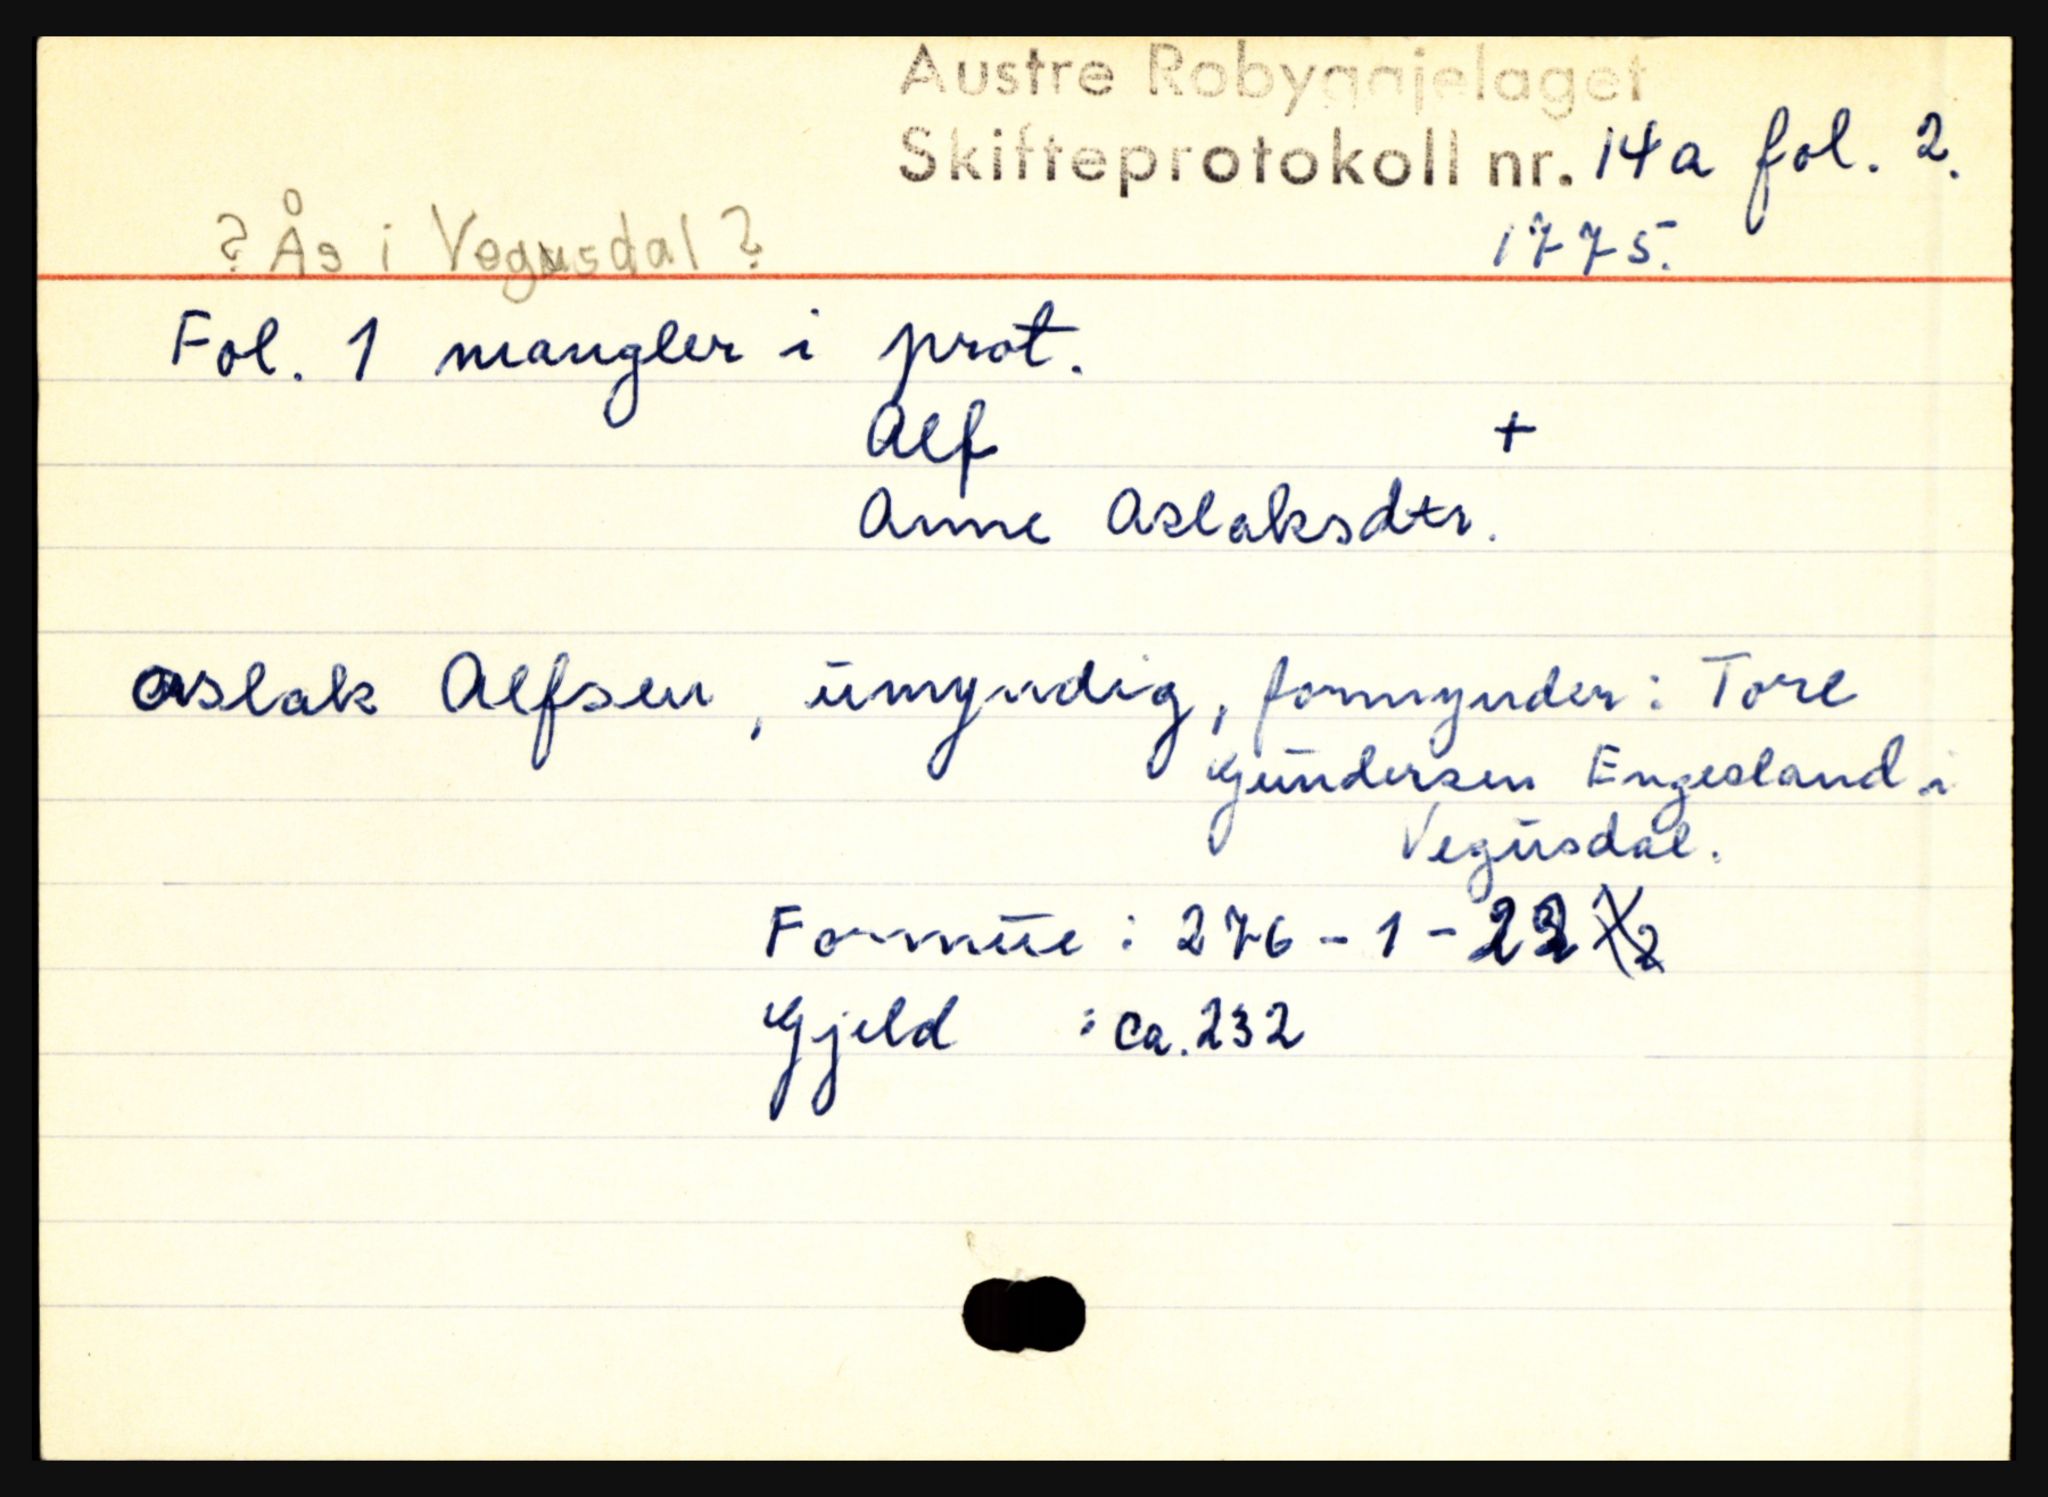 Austre Robyggjelaget
Skifteprotokoll nr. 14a fol. 2.
? Ås i Vegusdal ? 1775.
Fol. 1 mangler i prot.
Alf +
Anne Aslaksdtr.
Aslak Alfsen, umyndig, formynder: Tore
Gundersen Engesland i
Vegusdal.
Formue : 276 - 1 - 22
Gjeld : ca. 232